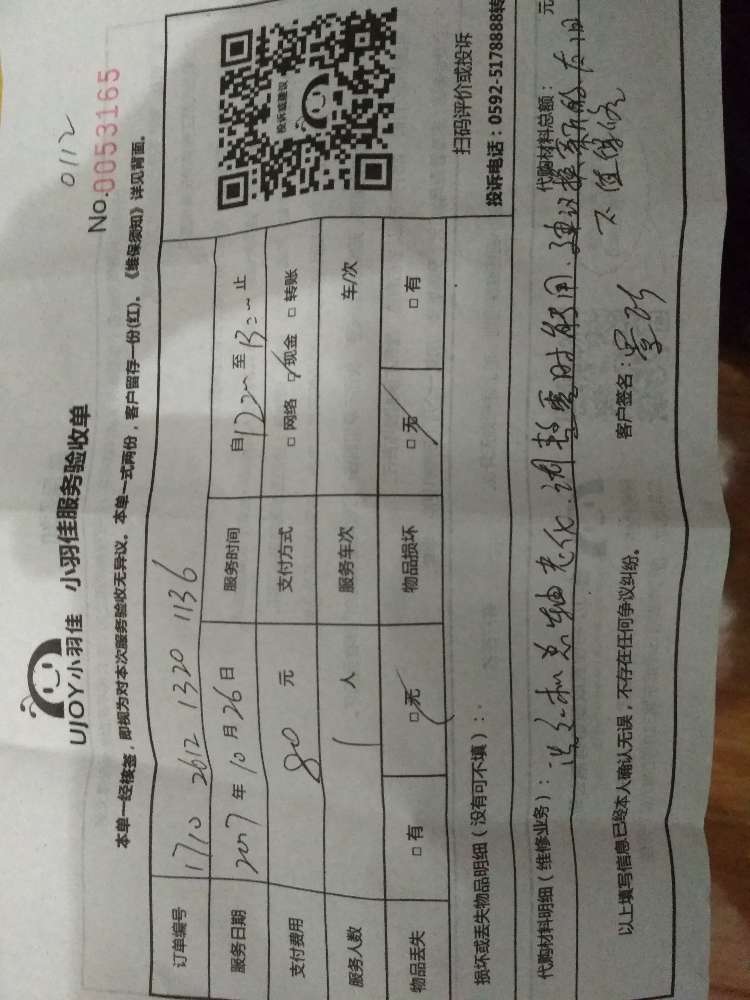 0112
No.0053165
UJOY小羽佳 小羽佳服务验收单
本单一经核签，即视为对本次服务验收无异议。本单一式两份，客户留存一份(红)。《维保须知》详见背面。
订单编号 1710 2612 1320 1136
服务日期 2017 年 10 月 26 日 服务时间 自 12 至 13 止
支付费用 80 元 支付方式 □ 网络 □ 现金 □ 转账
服务人数 1 人 服务车次 车/次
物品丢失 □ 有 □ 无 物品损坏 □ 无 □ 有
投诉或建议
扫码评价或投诉
投诉电话：0592-5178888转
损坏或丢失物品明细（没有可不填）：
代购材料明细（维修业务）： 代购材料总额： 元
洗衣机总轴老化.调整暂时能用.建议换新的太旧
不值得修
以上填写信息已经本人确认无误，不存在任何争议纠纷。 客户签名：